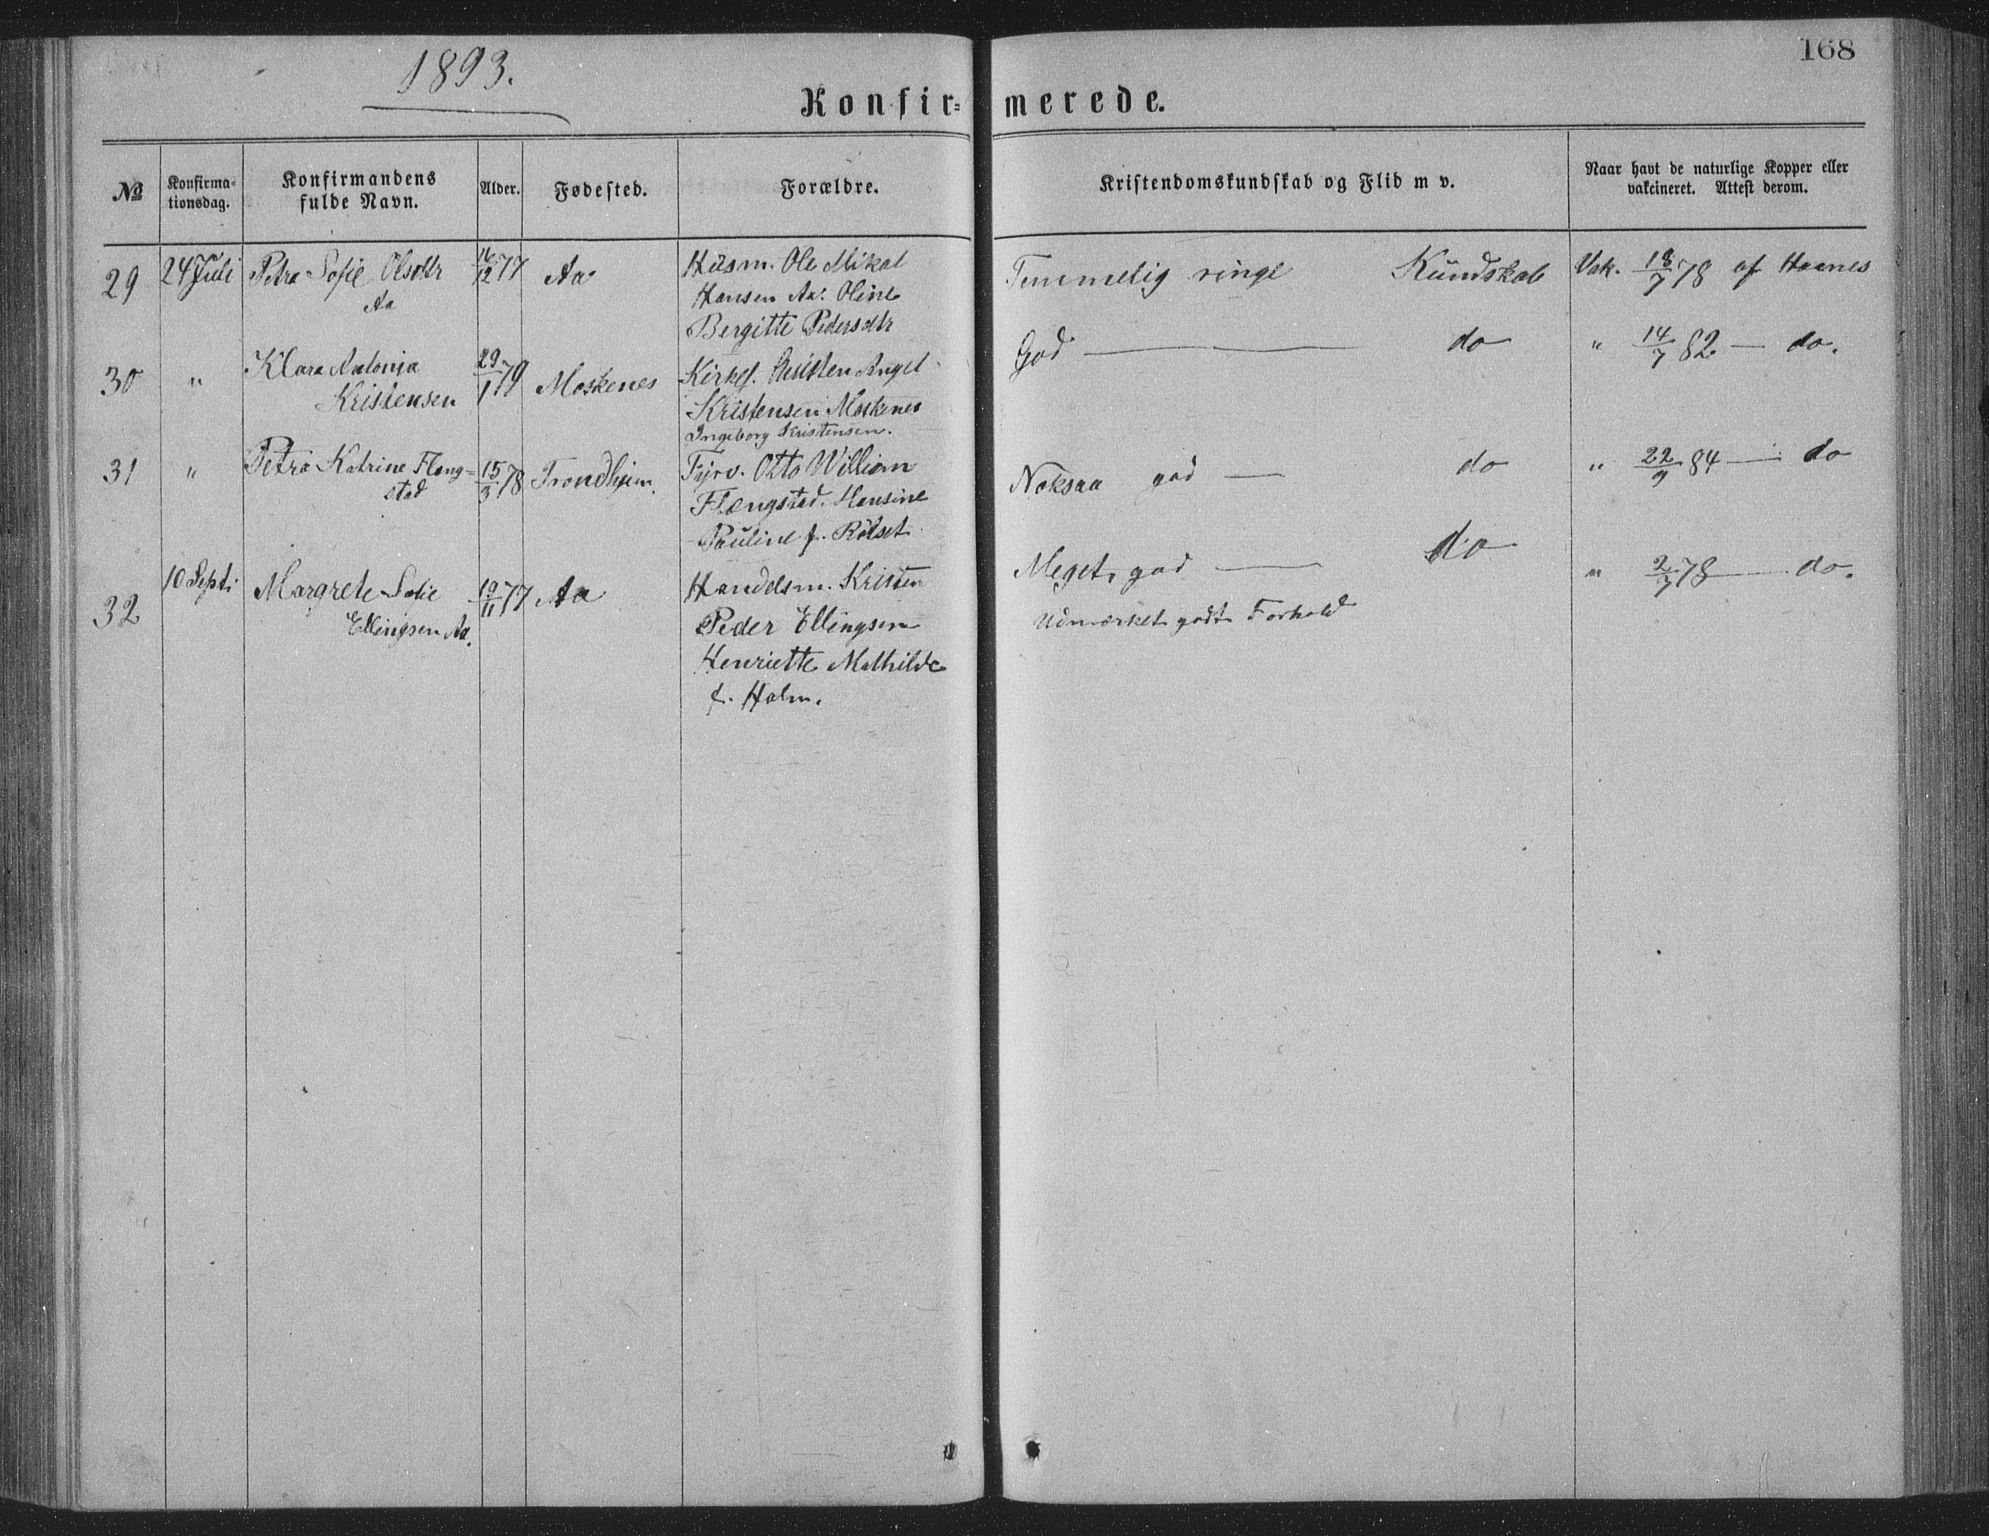 1893.
168
Konfir=merede.
№
Konfirma-
tionsdag.
Konfirmandens
fulde Navn.
Alder.
Fødested.
Forældre.
Kristendomskundskab og Flid m v.
Naar havt de naturlige Kopper eller
vakcineret. Attest derom.
29 24 Juli Petra Sofie Olsdtr 16/12 77 Aa Husm. Ole Mikal Temmelig ringe Kundskab Vak. 18/7 78 af Haanes
Aa Hansen Aa. Oline
Bergitte Pedersdtr
30 " Klara Antonia 29/1 79 Moskenes Kirkes. Angel God — do " 14/7 82 — do.
Kristensen Kristensen Moskenes
Ingeborg Kristensen.
31 " Petra Katrine Flæng= 15/3 78 Trondhjem. Fyrv. Otto William Noksaa god — do " 22/9 84 — do
stad Flængstad. Hansine
Pauline f. Rótset
32 10 Sept. Margrete Sofie 19/11 77 Aa Handelsm. Kristen Meget god — do " 2/7 78 — do.
Ellingsen Aa. Peder Ellingsen Udmærket godt Forhold
Henriette Mathilde
f. Holm.